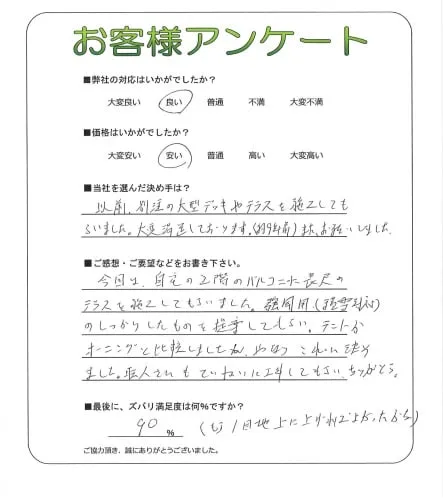 お客様アンケート
■弊社の対応はいかがでしたか?
大変良い 良い 普通 不満 大変不満
■価格はいかがでしたか?
大変安い 安い 普通 高い 大変高い
■当社を選んだ決め手は?
以前、別注の大型デッキやテラスを施工しても
らいました。大変満足しております。(約9年前)また、お願いしました。
■ご感想・ご要望などをお書き下さい。
今回は、自宅の2階のバルコニーに長尺の
テラスを施工してもらいました。強風用(積雪対応)
のしっかりしたものを提案してもらい、テントか
オーニングと比較しましたが、やはり これに決め
ました。職人さんも ていねいに工事してもらい、ありがとう。
■最後に、ズバリ満足度は何%ですか?
90 % (もう1日 地上に上がればよかったから)
ご協力頂き、誠にありがとうございました。